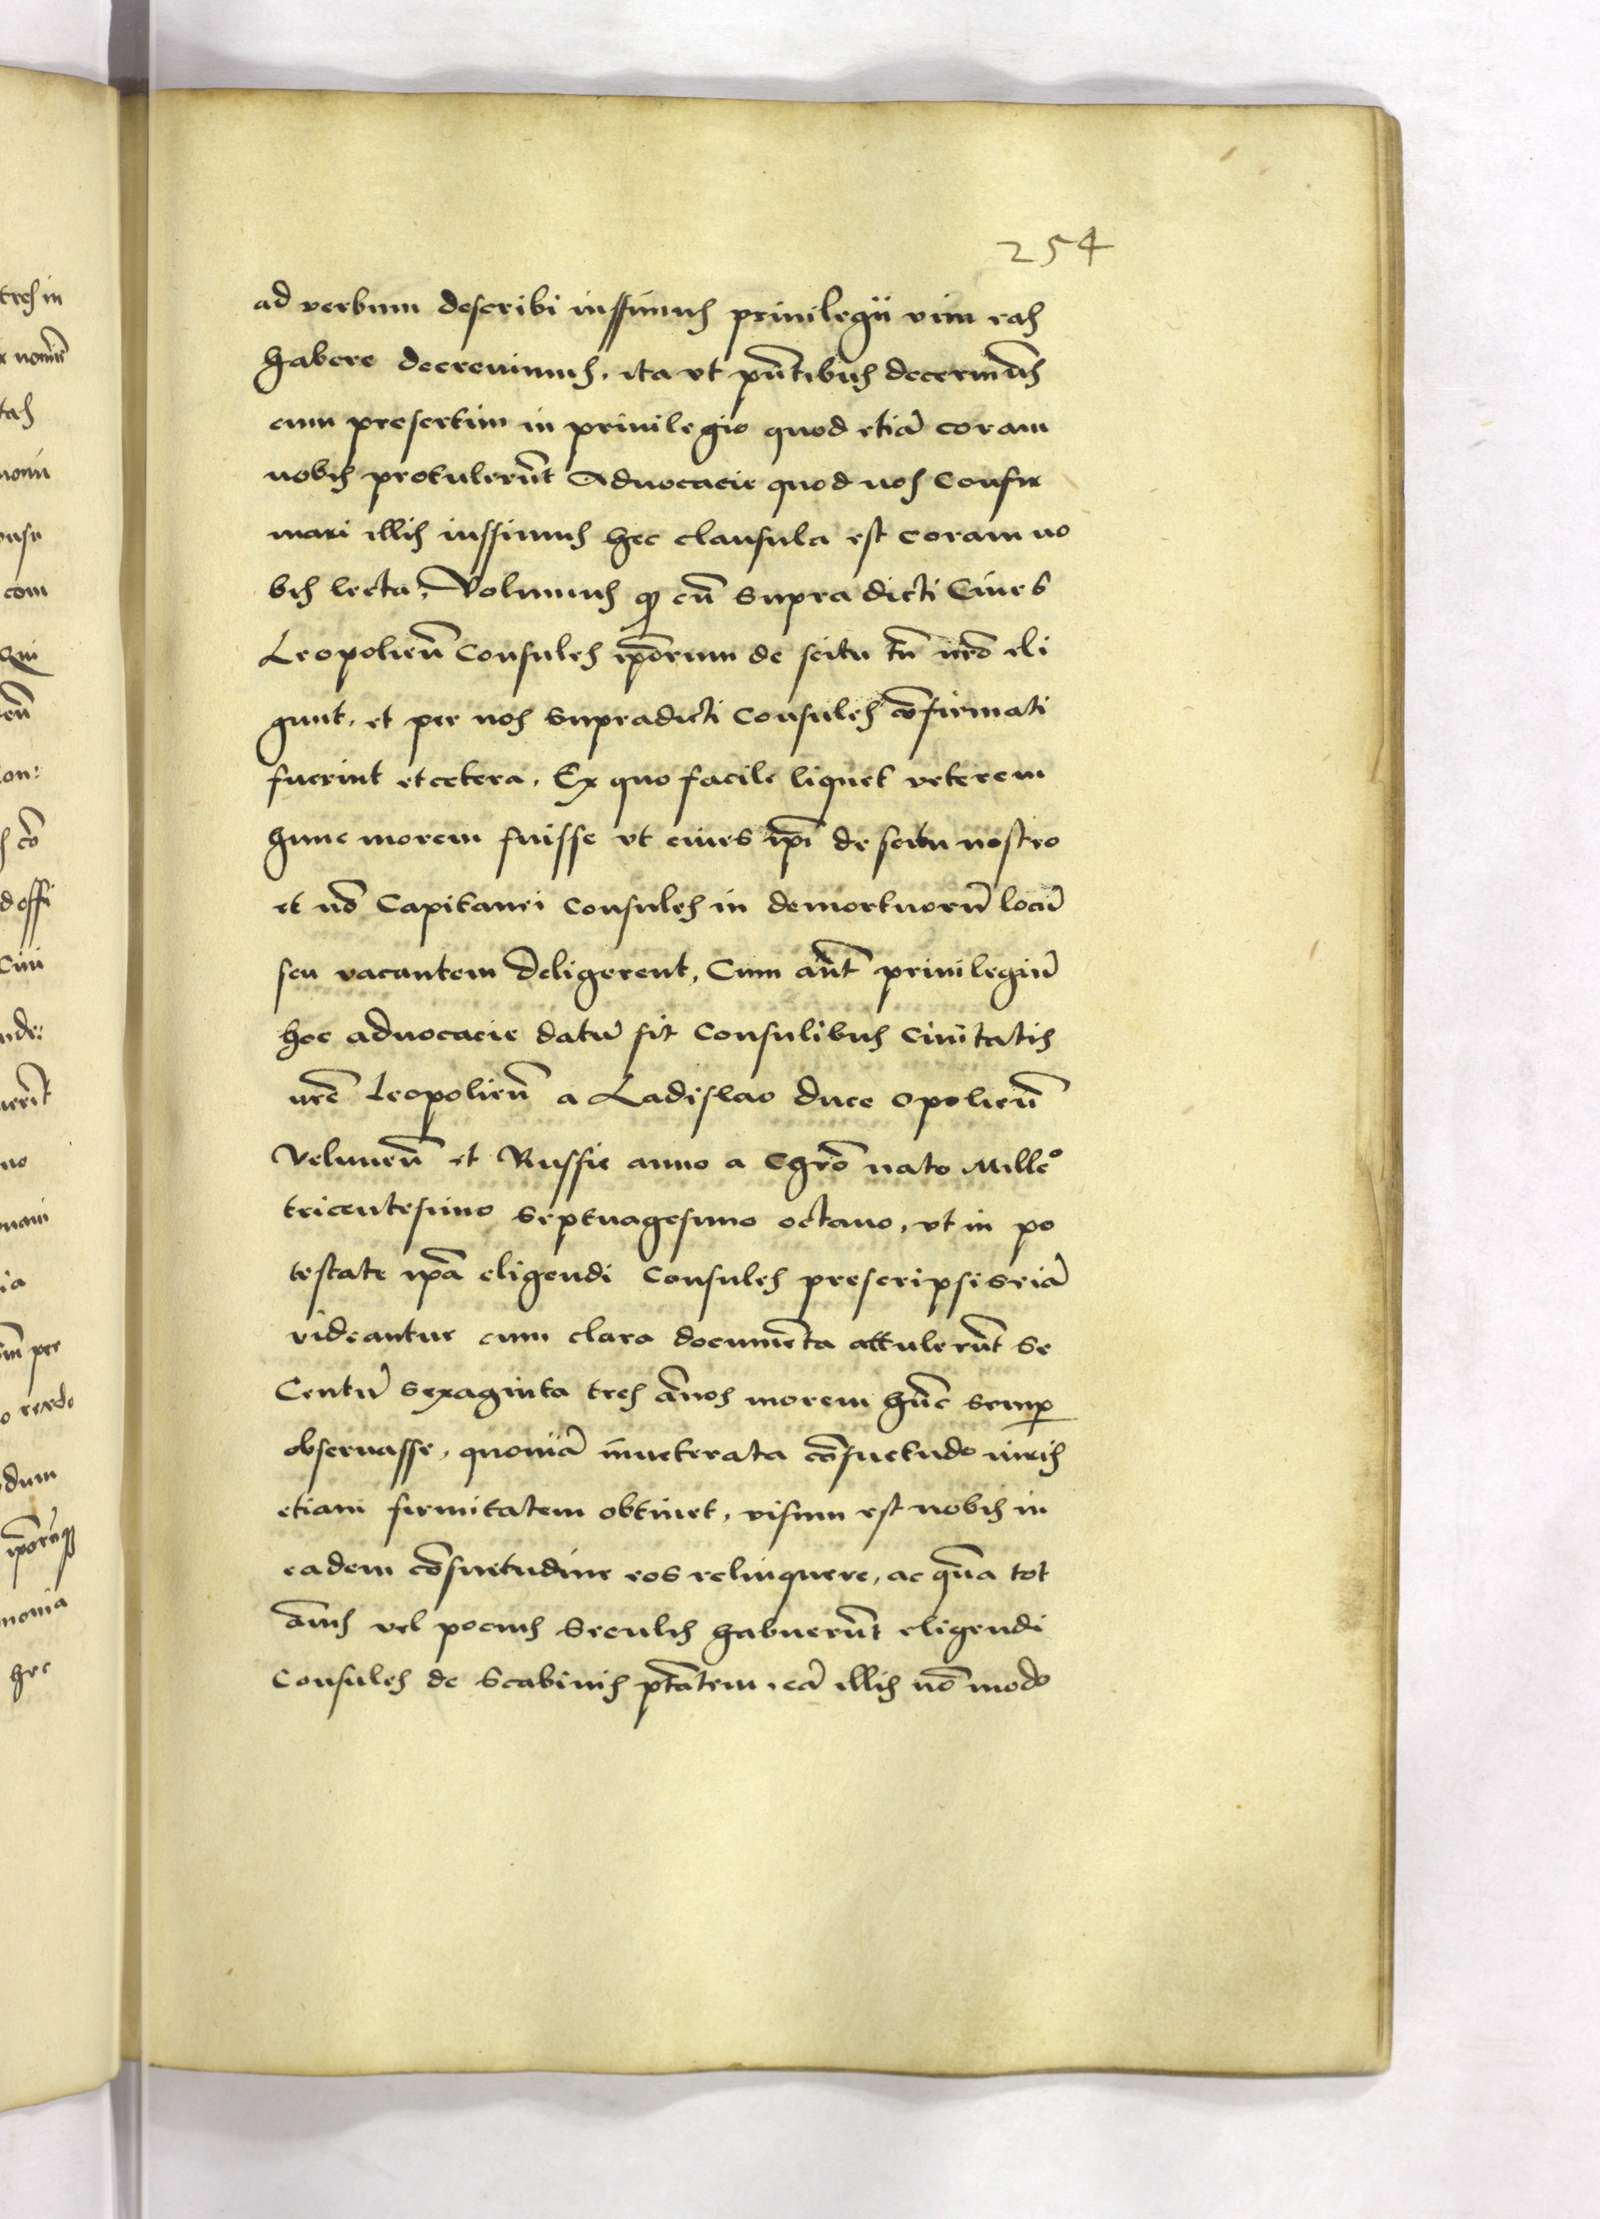 254
ad verbum describi iussimus privilegii vim eas
habere decrevimus, ita ut pn̄tibus decernim̄us
cum presertim in privilegio quod etiā coram
nobis protulerūt Advocacie quod nos Confir
mari illis iussimus hec clausula est coram no
bis lecta, Volumus qȝ cū supra dicti Cives
Leopolieñ Consules ip̄orum de scitu tn̄ nr̄o eli
gunt, et per nos supradicti Consules cōfirmati
fuerint et cetera, Ex quo facile liquet veterem
hunc morem fuisse ut cives ip̄i de scitu nostro
et nō Capitanei Consules in demortuorū locū
seu vacantem deligerent, Cum aūt privilegiū
hoc advocacie datū sit Consulibus Civitatis
nr̄e Leopolieñ a Ladislao duce Opolieñ
Veluneñ et Russie anno a Chr̄o nato Mill̄eo
tricentesimo septuagesimo octavo, ut in po
testate ip̄a eligendi Consules prescripsisse iā
videantur cum clara documēta attulerūt se
Centū sexaginta tres āños morem hūc semp̱
observasse, quoniā inveterata cōsuetudo iuris
etiam firmitatem obtinet, visum est nobis in
eadem cōsuetudine eos relinquere, ac qūa tot
āñis vel pocius seculis habuerūt eligendi
Consules de Scabinis ptātem, eā illis nō modo